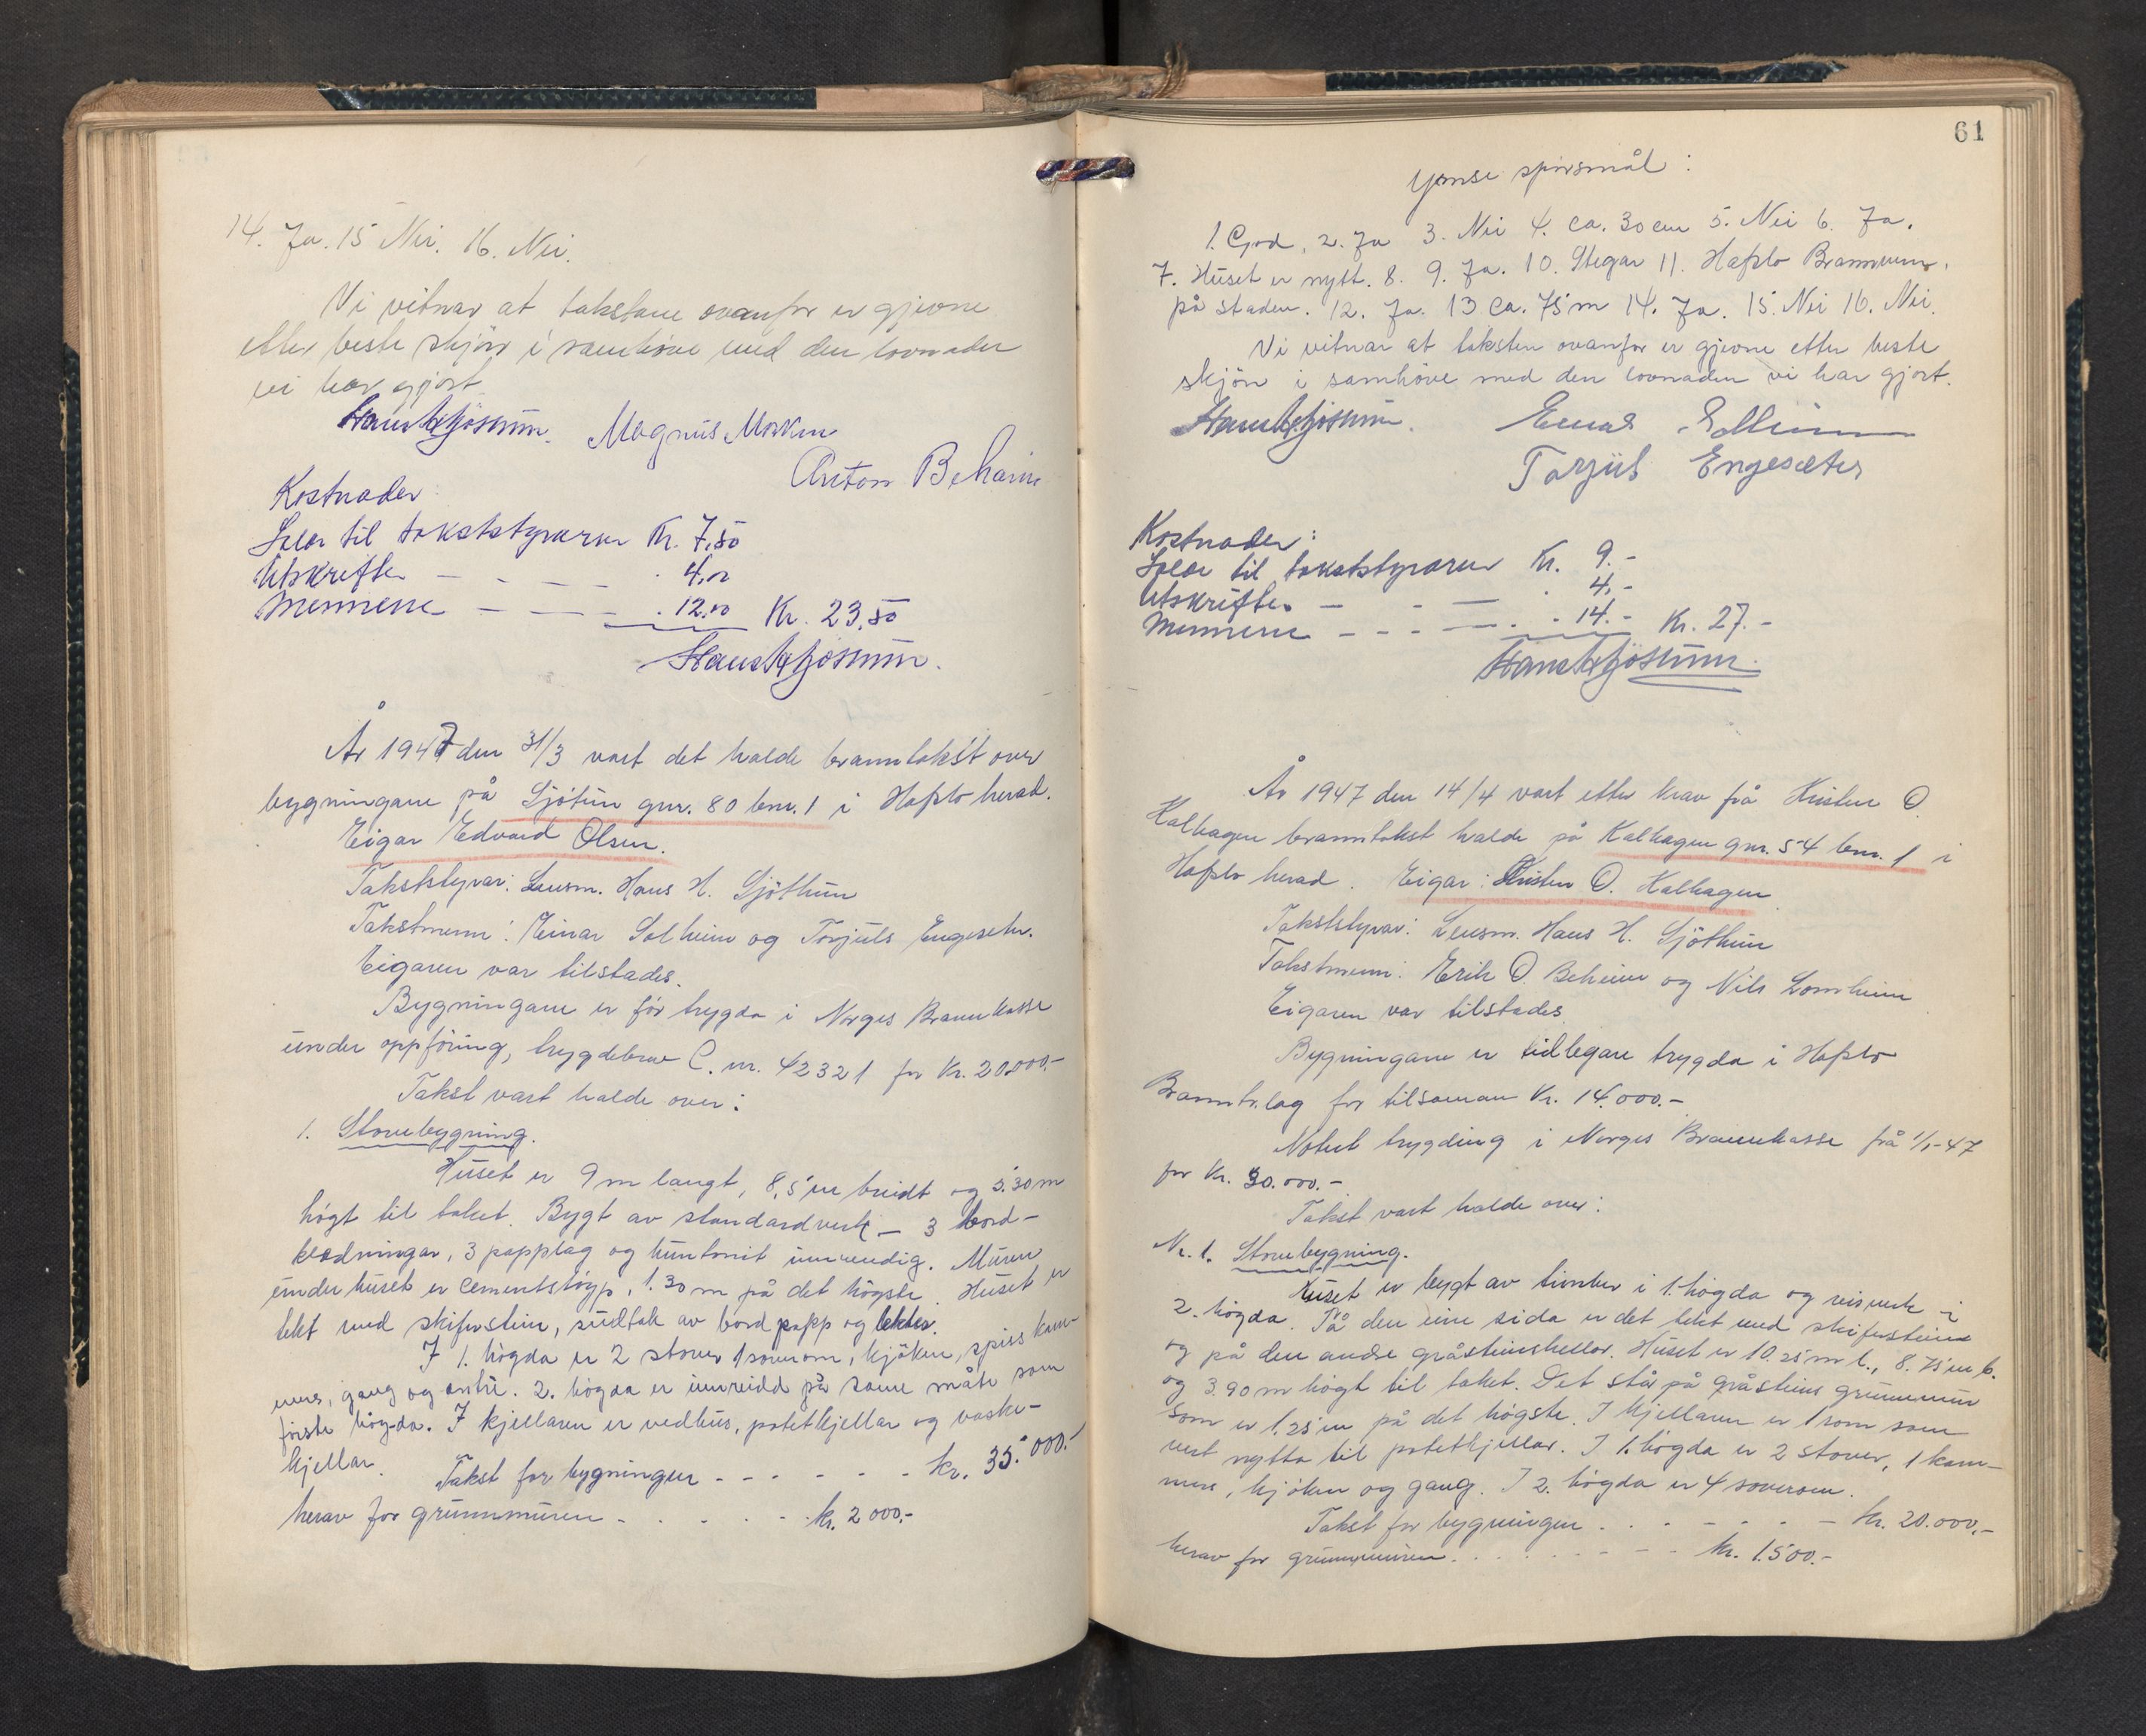 14. Ja. 15 Nei. 16. Nei.
Vi vitnar at takstane ovanfor er gjevne
etter beste skjøn i samhöve med den lovnaden
vi har gjort
Hans H Sjøthun. Magnus Morken
Anton Beheim
Kostnader:
Salær til takststyraren Kr. 7,50
Utskrifter – - – – . 4,00
Mennene – – – – . 12,00 Kr. 23,50
Hans H Sjøthun.
År 1947 den 31/3 vart det halde branntakst over
bygningane på Sjötun gnr. 80 bnr. 1 i Hafslo herad.
Eigar Edvard Olsen.
Takststyrar: Lensm. Hans H. Sjöthun
Takstmenn: Einar Solheim og Torjuls Engeseter.
Eigaren var tilstades.
Bygningane er för trygda i Norges Brannkasse
under oppföring, trygdebrev C. nr. 42321 for Kr. 20.000.-
Takst vart halde over:
1. Stovebygning.
Huset er 9 m langt, 8,5 m breidt og 5.30 m
högt til taket. Bygt av standardverk – 3 bord-
kledningar, 3 papplag og huntonit innvendig. Muren
under huset er cementstöyp, 1.30 m på det högste. Huset er
tekt med skiferstein, sudtak av bord papp og lekter.
I 1. högda er 2 stover 1 soverom, kjöken, spiskam-
mers, gang og entre. 2. högda er innreidd på same måte som
förste högda. I kjellaren er vedhus, potetkjellar og vaske-
kjellar.
Takst for bygningen - - - - - - kr. 35.000.-
herav for grunnmuren - - - - - kr. 2000.-
61
Ymse spörsmål:
1. God, 2. Ja 3. Nei 4. ca. 30 cm 5. Nei 6. Ja.
7. Huset er nytt. 8. 9. Ja. 10. Stegar 11. Hafslo Brannvern,
på staden. 12. Ja. 13 ca. 75 m 14. Ja. 15. Nei 16. Nei.
Vi vitnar at taksten ovanfor er gjevne etter beste
skjön i samhöve med den lovnaden vi har gjort.
Hans H. Sjøthun. Einar Solheim
Torjuls Engeseter
Kostnader:
Salær til takststyraren Kr. 9.-
Utskrifter – - – . 4,-
Mennene - - - – - . 14.- Kr. 27.-
Hans H Sjöthun.
År 1947 den 14/4 vart etter krav frå Kristen O.
Kalhagen branntakst halde på Kalhagen gnr. 54 bnr. 1 i
Hafslo herad. Eigar: Kristen O. Kalhagen
Takststyrar: Lensm. Hans H. Sjöthun
Takstmenn: Erik O. Beheim og Nils Lomheim
Eigaren var tilstades
Bygningane er tidlegare trygda i Hafslo
Branntr.lag for tilsaman Kr. 14.000.-
Notert trygding i Norges Brannkasse frå 1/1-47
for Kr. 30.000.-
Takst vart halde over:
Nr. 1. Stovebygning.
Huset er bygt av timber i 1. högda og reisverk i
2. högda. På den eine sida er det tekt med skiferstein
og på den andre gråsteinshellor. Huset er 10.25 m l., 8.75 m b.
og 3.90 m högt til taket. Det står på gråsteins grunnmur
som er 1.25 m på det högste. I kjellaren er 1 rom som
vert nytta til potetkjellar. I 1. högda er 2 stover, 1 kam-
mers, kjöken og gang. I 2. högda er 4 soverom.
Takst for bygningen . . - - - - – kr. 20.000.-
herav for grunnmuren. . . . . - - - kr. 1.500.-